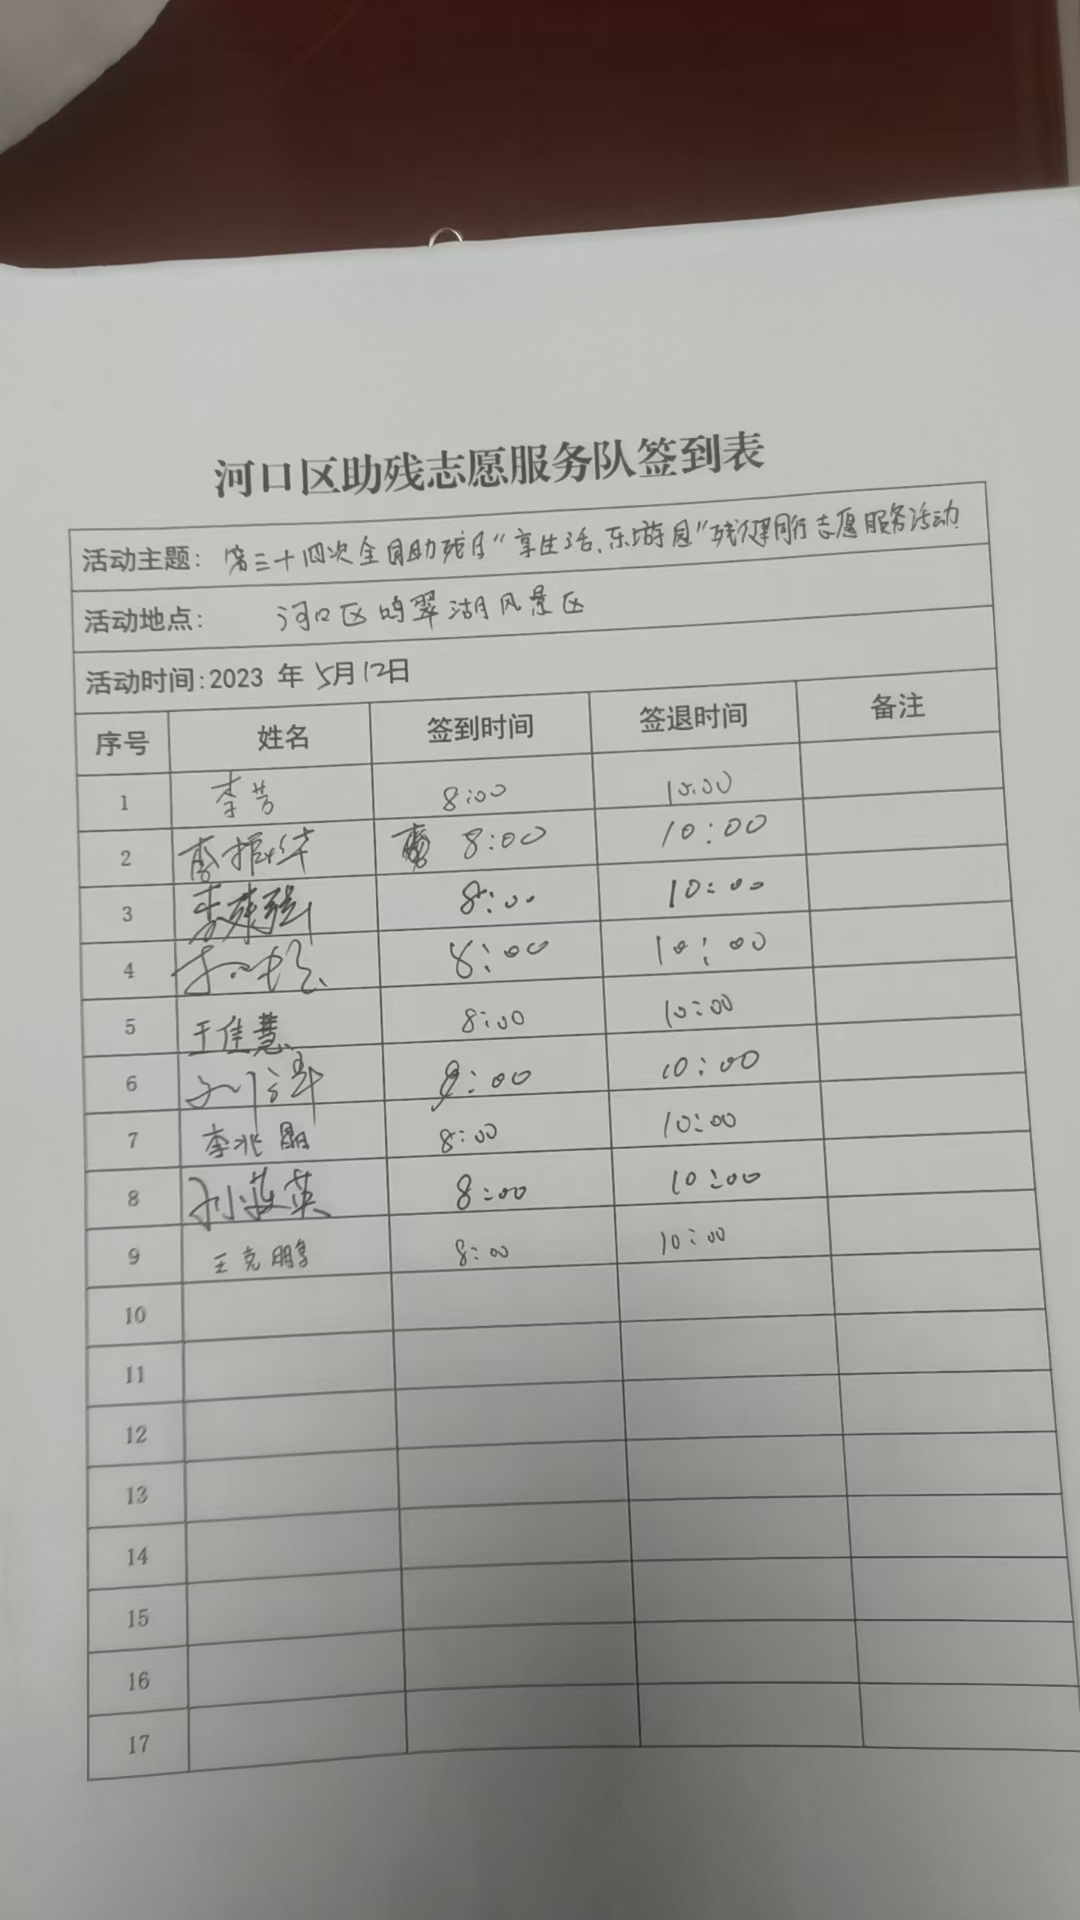 河口区助残志愿服务队签到表
活动主题: 第三十四次全国助残月"享生活、乐游园"残健同行志愿服务活动
活动地点: 河口区鸣翠湖风景区
活动时间:2023 年 5月12日
序号 姓名 签到时间 签退时间 备注
1 李芳 8:00 10:00
2 李振华 8:00 10:00
3 李 强 8:00 10:00
4 8:00 10:00
5 王佳慧 8:00 10:00
6 8:00 10:00
7 李兆晶 8:00 10:00
8 孙 英 8:00 10:00
9 王克鹏 8:00 10:00
10
11
12
13
14
15
16
17